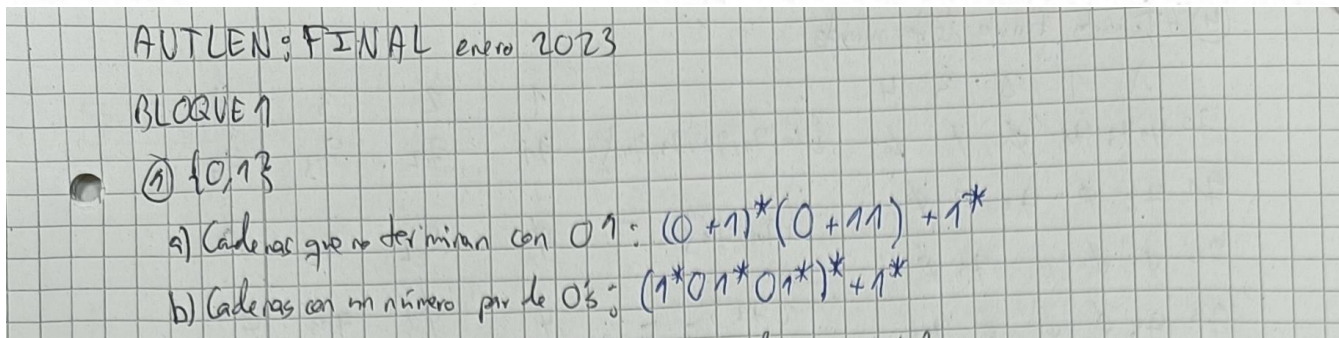 AUTLEN: FINAL enero 2023
BLOQUE 1
① {0,1}
a) Cadenas que no terminan con 01: (0+1)*(0+11)+1*
b) Cadenas con un número par de 0's: (1*01*01*)*+1*